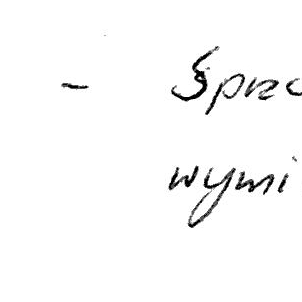 - Sprz
wymi